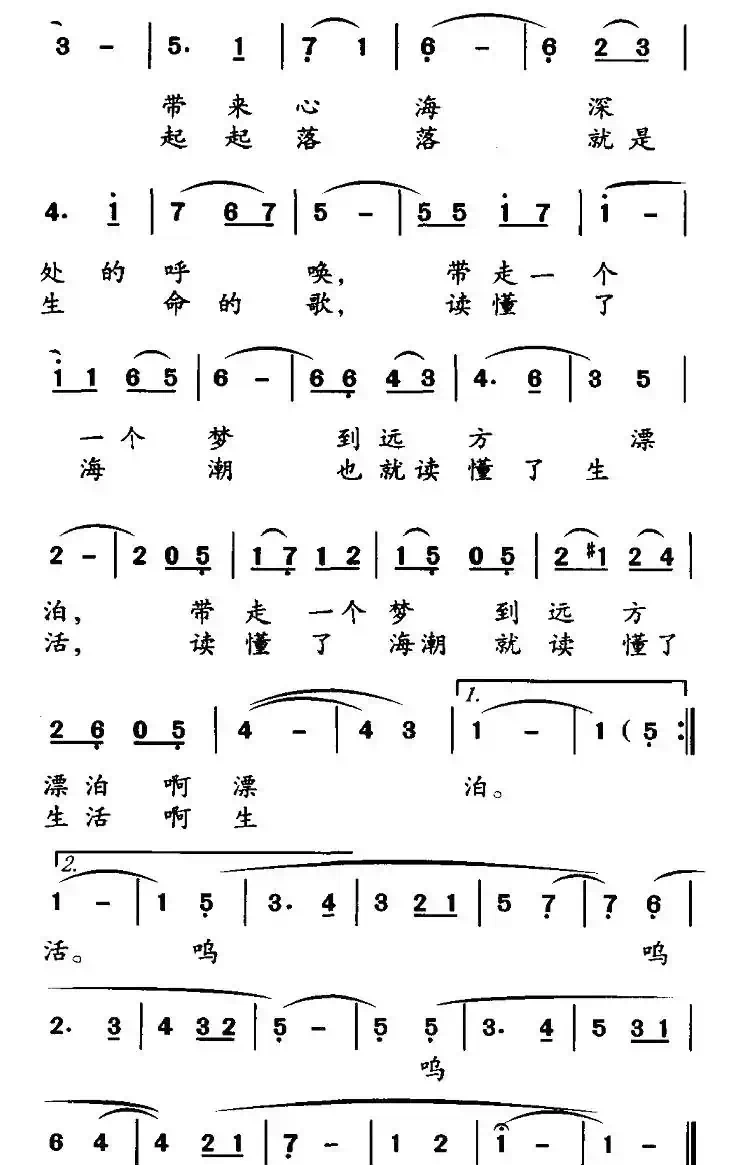 3 - | 5. 1 | 7 1 | 6 - | 6 2 3 |
带来心海深
起起落落就是
4. i | 7 6 7 | 5 - | 5 5 i 7 | i - |
处的呼唤，带走一个
生命的歌，读懂了
i 1 6 5 | 6 - | 6 6 4 3 | 4. 6 | 3 5 |
一个梦到远方漂
海潮也就读懂了生
2 - | 2 0 5 | 1 7 1 2 | 1 5 0 5 | 2 #1 2 4 |
泊，带走一个梦到远方
活，读懂了海潮就读懂了
1.
2 6 0 5 | 4 - | 4 3 | 1 - | 1 ( 5 :||
漂泊啊漂泊。
生活啊生
2.
1 - | 1 5 | 3. 4 | 3 2 1 | 5 7 | 7 6 |
活。呜呜
2. 3 | 4 3 2 | 5 - | 5 5 | 3. 4 | 5 3 1 |
呜
6 4 | 4 2 1 | 7 - | 1 2 | i - | 1 - ||